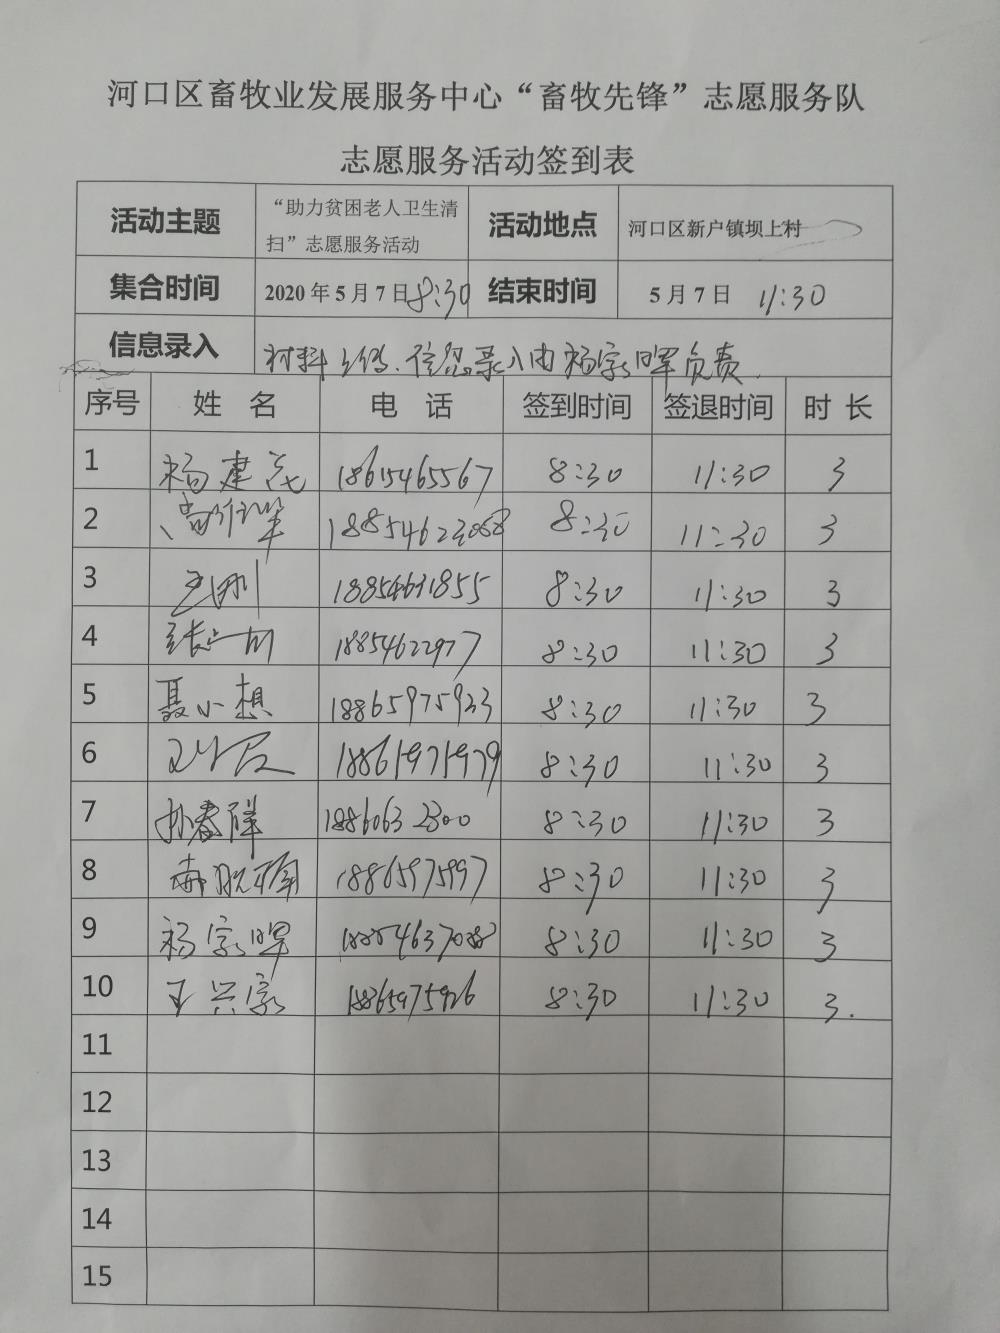 河口区畜牧业发展服务中心“畜牧先锋”志愿服务队
志愿服务活动签到表
活动主题 “助力贫困老人卫生清扫”志愿服务活动 活动地点 河口区新户镇坝上村
集合时间 2020年5月7日8:30 结束时间 5月7日 11:30
信息录入 材料上传、信息录入由杨家晖负责.
序号 姓 名 电 话 签到时间 签退时间 时 长
1 杨建 18615465567 8:30 11:30 3
2 18854623058 8:30 11:30 3
3 18854631855 8:30 11:30 3
4 18854622977 8:30 11:30 3
5 聂小想 18865975923 8:30 11:30 3
6 18861971979 8:30 11:30 3
7 孙春祥 18860632300 8:30 11:30 3
8 18865975997 8:30 11:30 3
9 杨家晖 8:30 11:30 3
10 王兴家 18865975926 8:30 11:30 3.
11
12
13
14
15